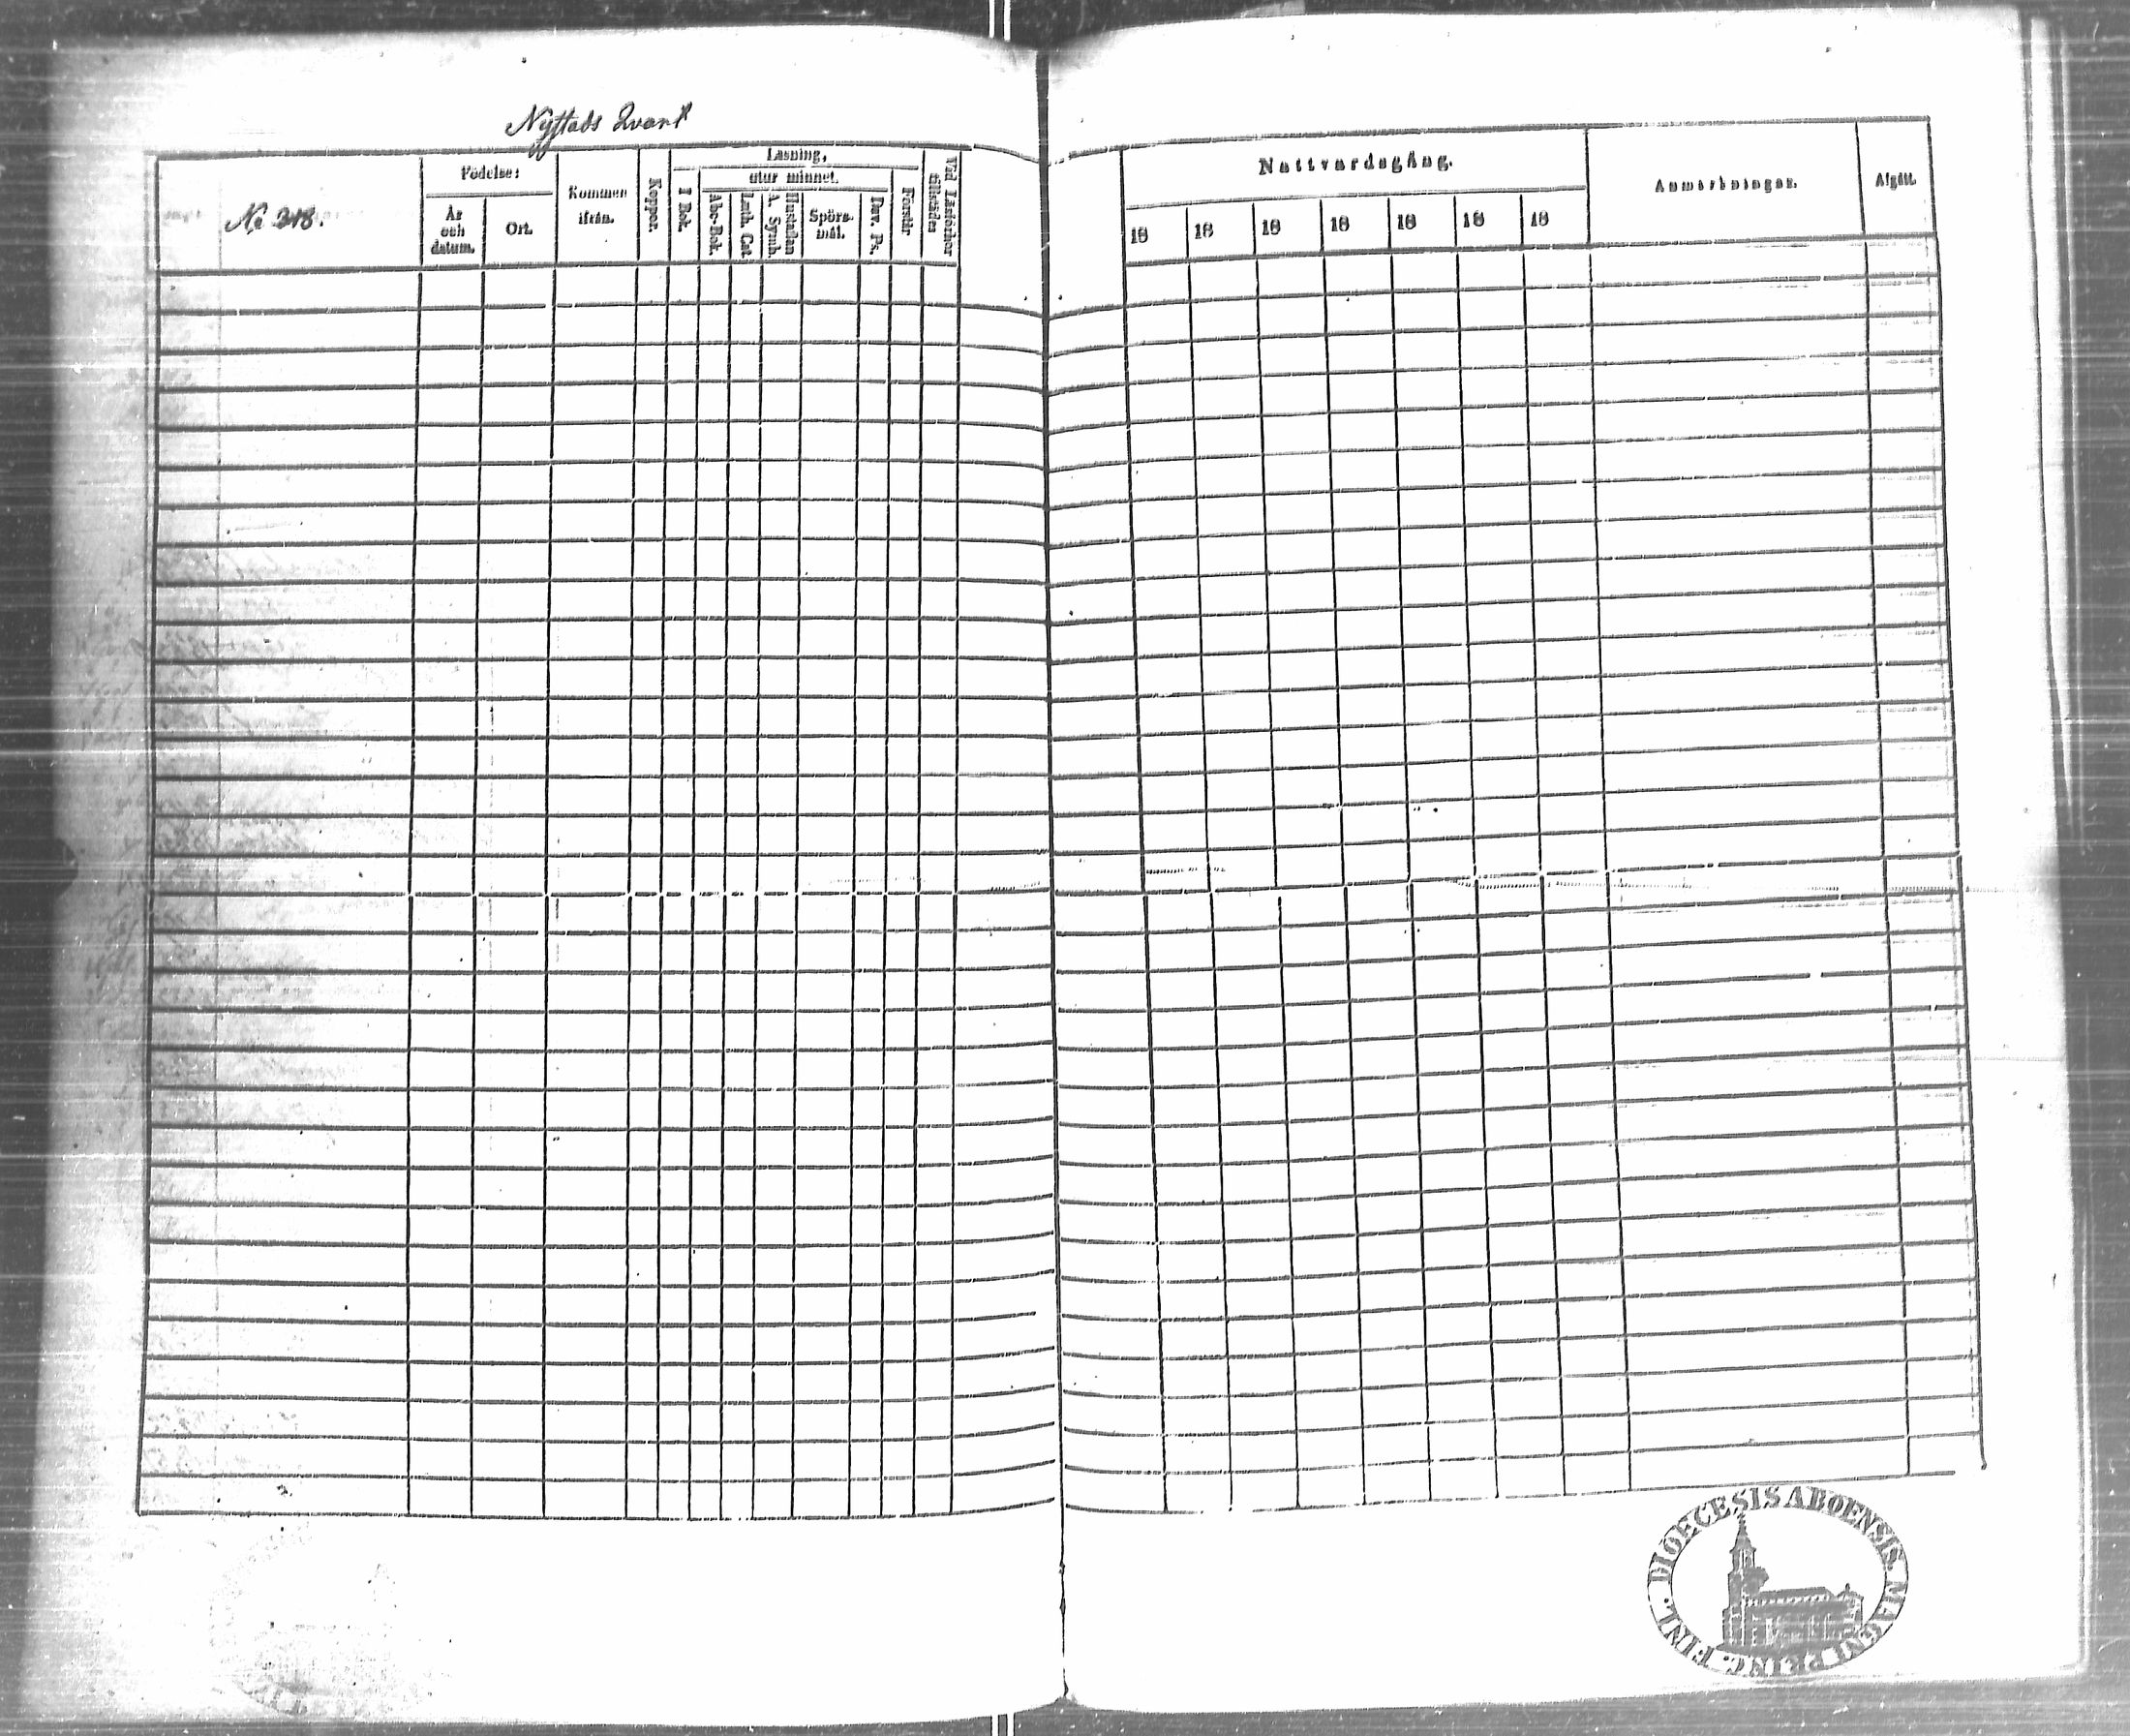 Nystads Qvart
No 318.
Födelse:
År
och
datum.
Ort.
Kommen
ifrån.
Koppor.
Läsning,
utur minnet.
I Bok.
Abc-Bok.
Luth. Cat.
Hustaflan
A. Symb.
Spörs-
mål.
Dav. Ps.
Förstår
Vid Läsförhör
tillstädes
Nattvardsgång.
18 18 18 18 18 18 18
Anmärkningar.
Afgått.
DIOECESIS ABOENSIS. MAGNI PRINC. FINL.